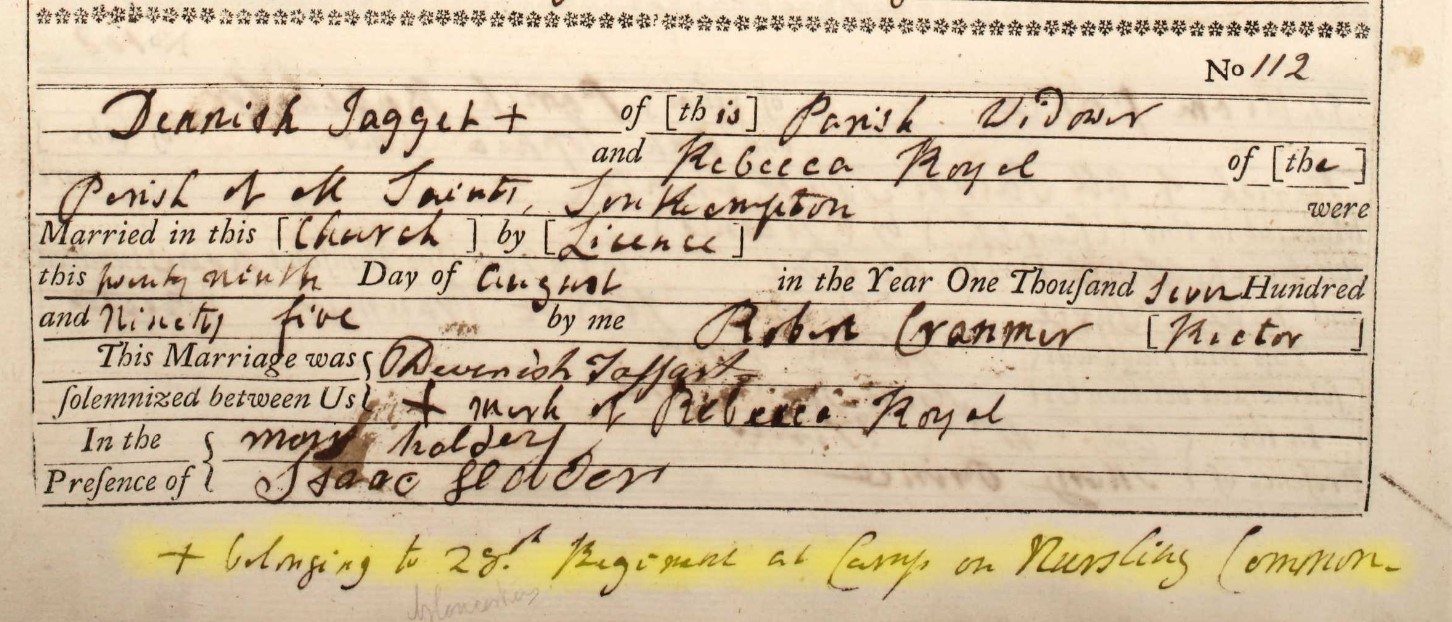 No 112
Dennish Jagget + of [this] Parish Widower
and Rebecca Royal of [the]
Parish of All Saints, Southampton were
Married in this [Church] by [Licence]
this twenty ninth Day of August in the Year One Thouſand Seven Hundred
and Ninety five by me Robert Cranmer [Rector]
This Marriage was { Devenish Taggart
ſolemnized between Us { + mark of Rebecca Royal
In the { mary holder
Preſence of { Isaac
+ belonging to 28th Regiment at Camp on Nursling Common